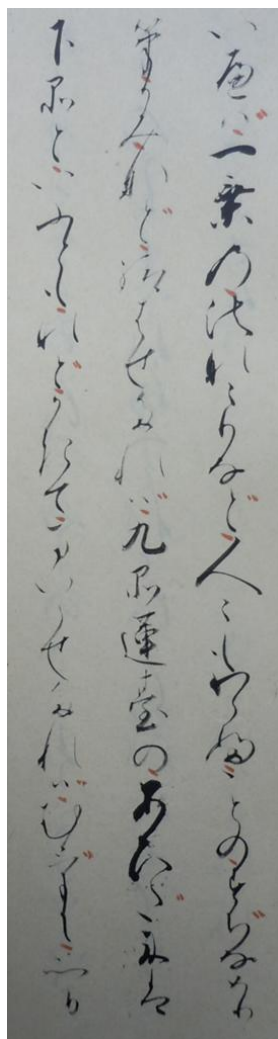 いへば一乗の法なゝりなど人〻もわらふことのすぢなめり
筆かみなど給はせたれば九品蓮臺のあひだには
下品といふともなどかきてまいらせたればむげに思ひ